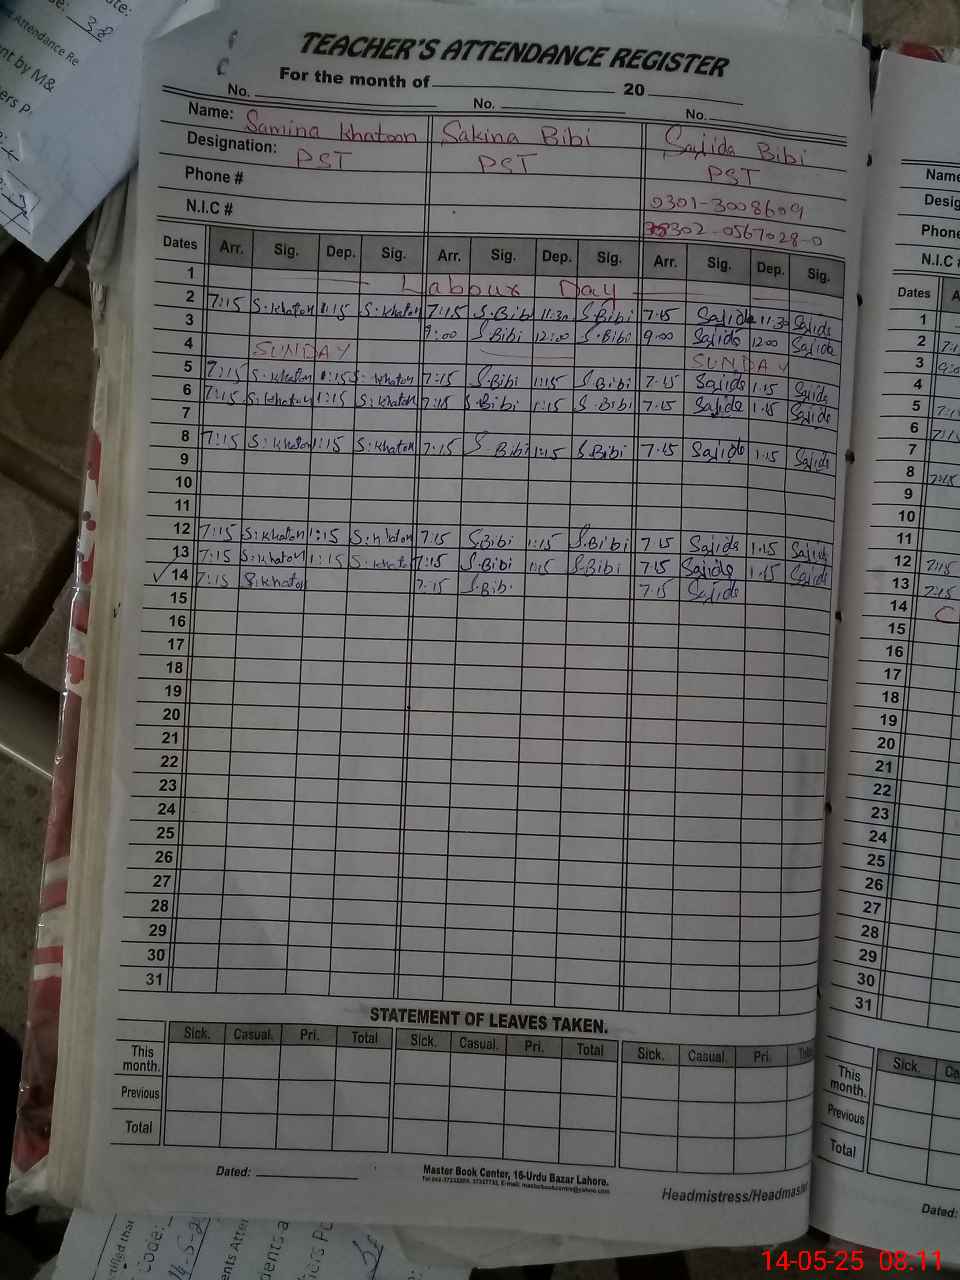 TEACHER'S ATTENDANCE REGISTER
For the month of 20
No. No. No.
Name: Samina Khatoon Sakina Bibi Sajida Bibi
Designation: PST PST PST
Phone # 0301-3008609
N.I.C # 302-0567028-0
Dates Arr. Sig. Dep. Sig. Arr. Sig. Dep. Sig. Arr. Sig. Dep. Sig.
1 Labour Day
2 7:15 S.khaton 1:15 S.khaton 7:15 S.Bibi 11:30 S.Bibi 7.15 Sajida 11.30 Sajida
3 9:00 S Bibi 12:00 S.Bibi 9.00 Sajida 12.00 Sajida
4 SUNDAY SUNDAY
5 7:15 S.khaton 1:15 S.khaton 7:15 S.Bibi 1:15 S.Bibi 7.15 Sajida 1.15 Sajida
6 7:15 S.khaton 1:15 S.khaton 7:15 S.Bibi 1:15 S.Bibi 7.15 Sajida 1.15 Sajida
7
8 7:15 S.khaton 1:15 S.khaton 7:15 S Bibi 1:15 S.Bibi 7.15 Sajida 1.15 Sajida
9
10
11
12 7:15 S.khaton 1:15 S.khaton 7:15 S.Bibi 1:15 S.Bibi 7.15 Sajida 1.15 Sajida
13 7:15 S.khaton 1:15 S.khaton 7:15 S.Bibi 1:15 S.Bibi 7.15 Sajida 1.15 Sajida
14 7:15 S.khaton 7:15 S.Bib. 7.15 Sajida
15
16
17
18
19
20
21
22
23
24
25
26
27
28
29
30
31
STATEMENT OF LEAVES TAKEN.
Sick. Casual. Pri. Total Sick. Casual. Pri. Total Sick. Casual. Pri.
This month.
Previous
Total
Dated:
Master Book Center, 16-Urdu Bazar Lahore.
Headmistress/Headmaster
Name
Phone
N.I.C #
Dates
1
2
3
4
5
6
7
8 7:15
9
10
11
12 7:15
13 7:15
14
15
16
17
18
19
20
21
22
23
24
25
26
27
28
29
30
31
Sick.
This month.
Previous
Total
Dated:
14-05-25 08:11